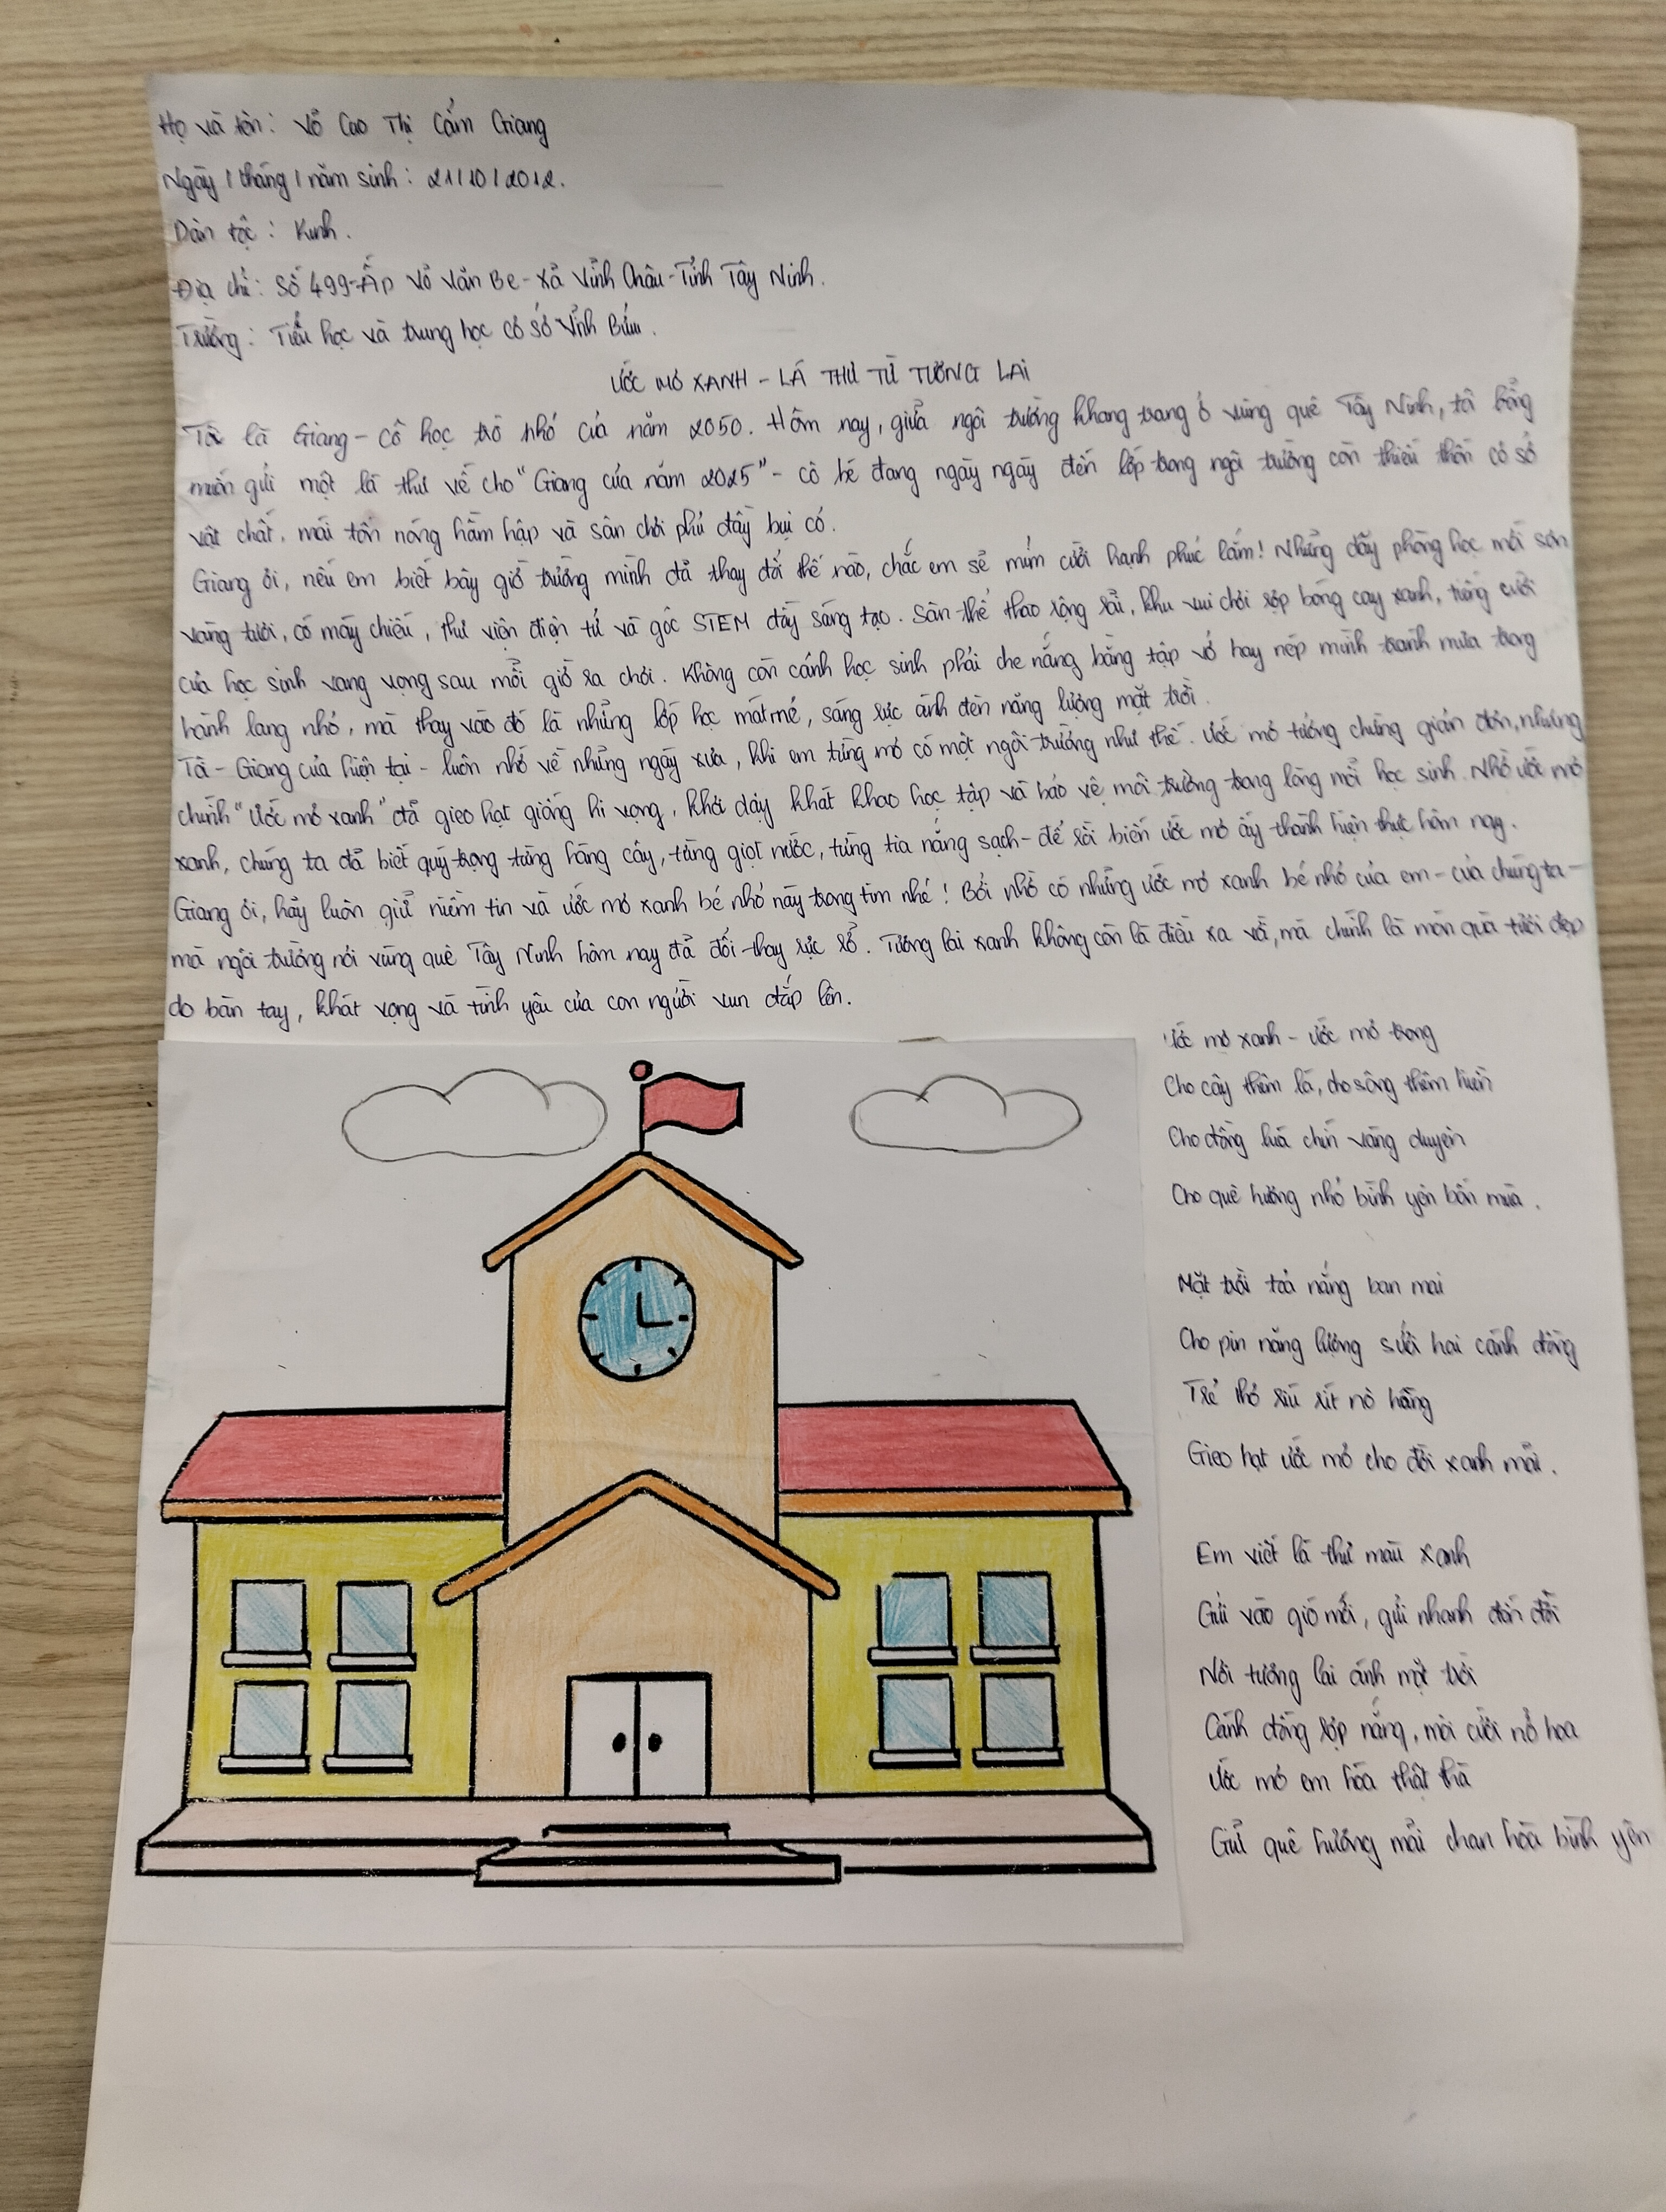 Họ và tên: Võ Cao Thị Cẩm Giang
Ngày / tháng / năm sinh: 21/10/2012.
Dân tộc: Kinh.
Địa chỉ: Số 499-Ấp Võ Văn Be-xã Vĩnh Châu-Tỉnh Tây Ninh.
Trường: Tiểu học và trung học cơ sở Vĩnh Bửu.
ƯỚC MƠ XANH - LÁ THƯ TỪ TƯƠNG LAI
Tôi là Giang - cô học trò nhỏ của năm 2050. Hôm nay, giữa ngôi trường khang trang ở vùng quê Tây Ninh, tôi bỗng
muốn gửi một lá thư về cho "Giang của năm 2025" - cô bé đang ngày ngày đến lớp trong ngôi trường còn thiếu thốn cơ sở
vật chất, mái tôn nóng hầm hập và sân chơi phủ đầy bụi cỏ.
Giang ơi, nếu em biết bây giờ trường mình đã thay đổi thế nào, chắc em sẽ mỉm cười hạnh phúc lắm! Những dãy phòng học mới sơn
vàng tươi, có máy chiếu, thư viện điện tử và góc STEM đầy sáng tạo. Sân thể thao rộng rãi, khu vui chơi rợp bóng cây xanh, tiếng cười
của học sinh vang vọng sau mỗi giờ ra chơi. Không còn cảnh học sinh phải che nắng bằng tập vở hay nép mình tránh mưa trong
hành lang nhỏ, mà thay vào đó là những lớp học mát mẻ, sáng rực ánh đèn năng lượng mặt trời.
Tôi - Giang của hiện tại - luôn nhớ về những ngày xưa, khi em từng mơ có một ngôi trường như thế. Ước mơ tưởng chừng giản đơn, nhưng
chính "Ước mơ xanh" đã gieo hạt giống hi vọng, khơi dậy khát khao học tập và bảo vệ môi trường trong lòng mỗi học sinh. Nhờ ước mơ
xanh, chúng ta đã biết quý trọng từng hàng cây, từng giọt nước, từng tia nắng sạch - để rồi biến ước mơ ấy thành hiện thực hôm nay.
Giang ơi, hãy luôn giữ niềm tin và ước mơ xanh bé nhỏ này trong tim nhé! Bởi nhờ có những ước mơ xanh bé nhỏ của em - của chúng ta -
mà ngôi trường nơi vùng quê Tây Ninh hôm nay đã đổi thay rực rỡ. Tương lai xanh không còn là điều xa vời, mà chính là món quà tươi đẹp
do bàn tay, khát vọng và tình yêu của con người vun đắp lên.
Ước mơ xanh - ước mơ trong
Cho cây thêm lá, cho sông thêm hiền
Cho đồng lúa chín vàng duyên
Cho quê hương nhỏ bình yên bốn mùa.
Mặt trời toả nắng ban mai
Cho pin năng lượng sưởi hai cánh đồng
Trẻ thơ ríu rít nô hồng
Gieo hạt ước mơ cho đời xanh mãi.
Em viết lá thư màu xanh
Gửi vào gió mới, gửi nhanh đến đời
Nơi tương lai ánh mặt trời
Cánh đồng rợp nắng, môi cười nở hoa
Ước mơ em hóa thật thà
Giữ quê hương mãi chan hòa bình yên